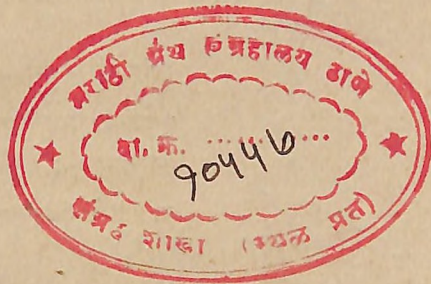 मराठी ग्रंथ संग्रहालय ठाणे
वा. क्र. ............
१०५५७
संग्रह शाखा (स्थळ प्रत)